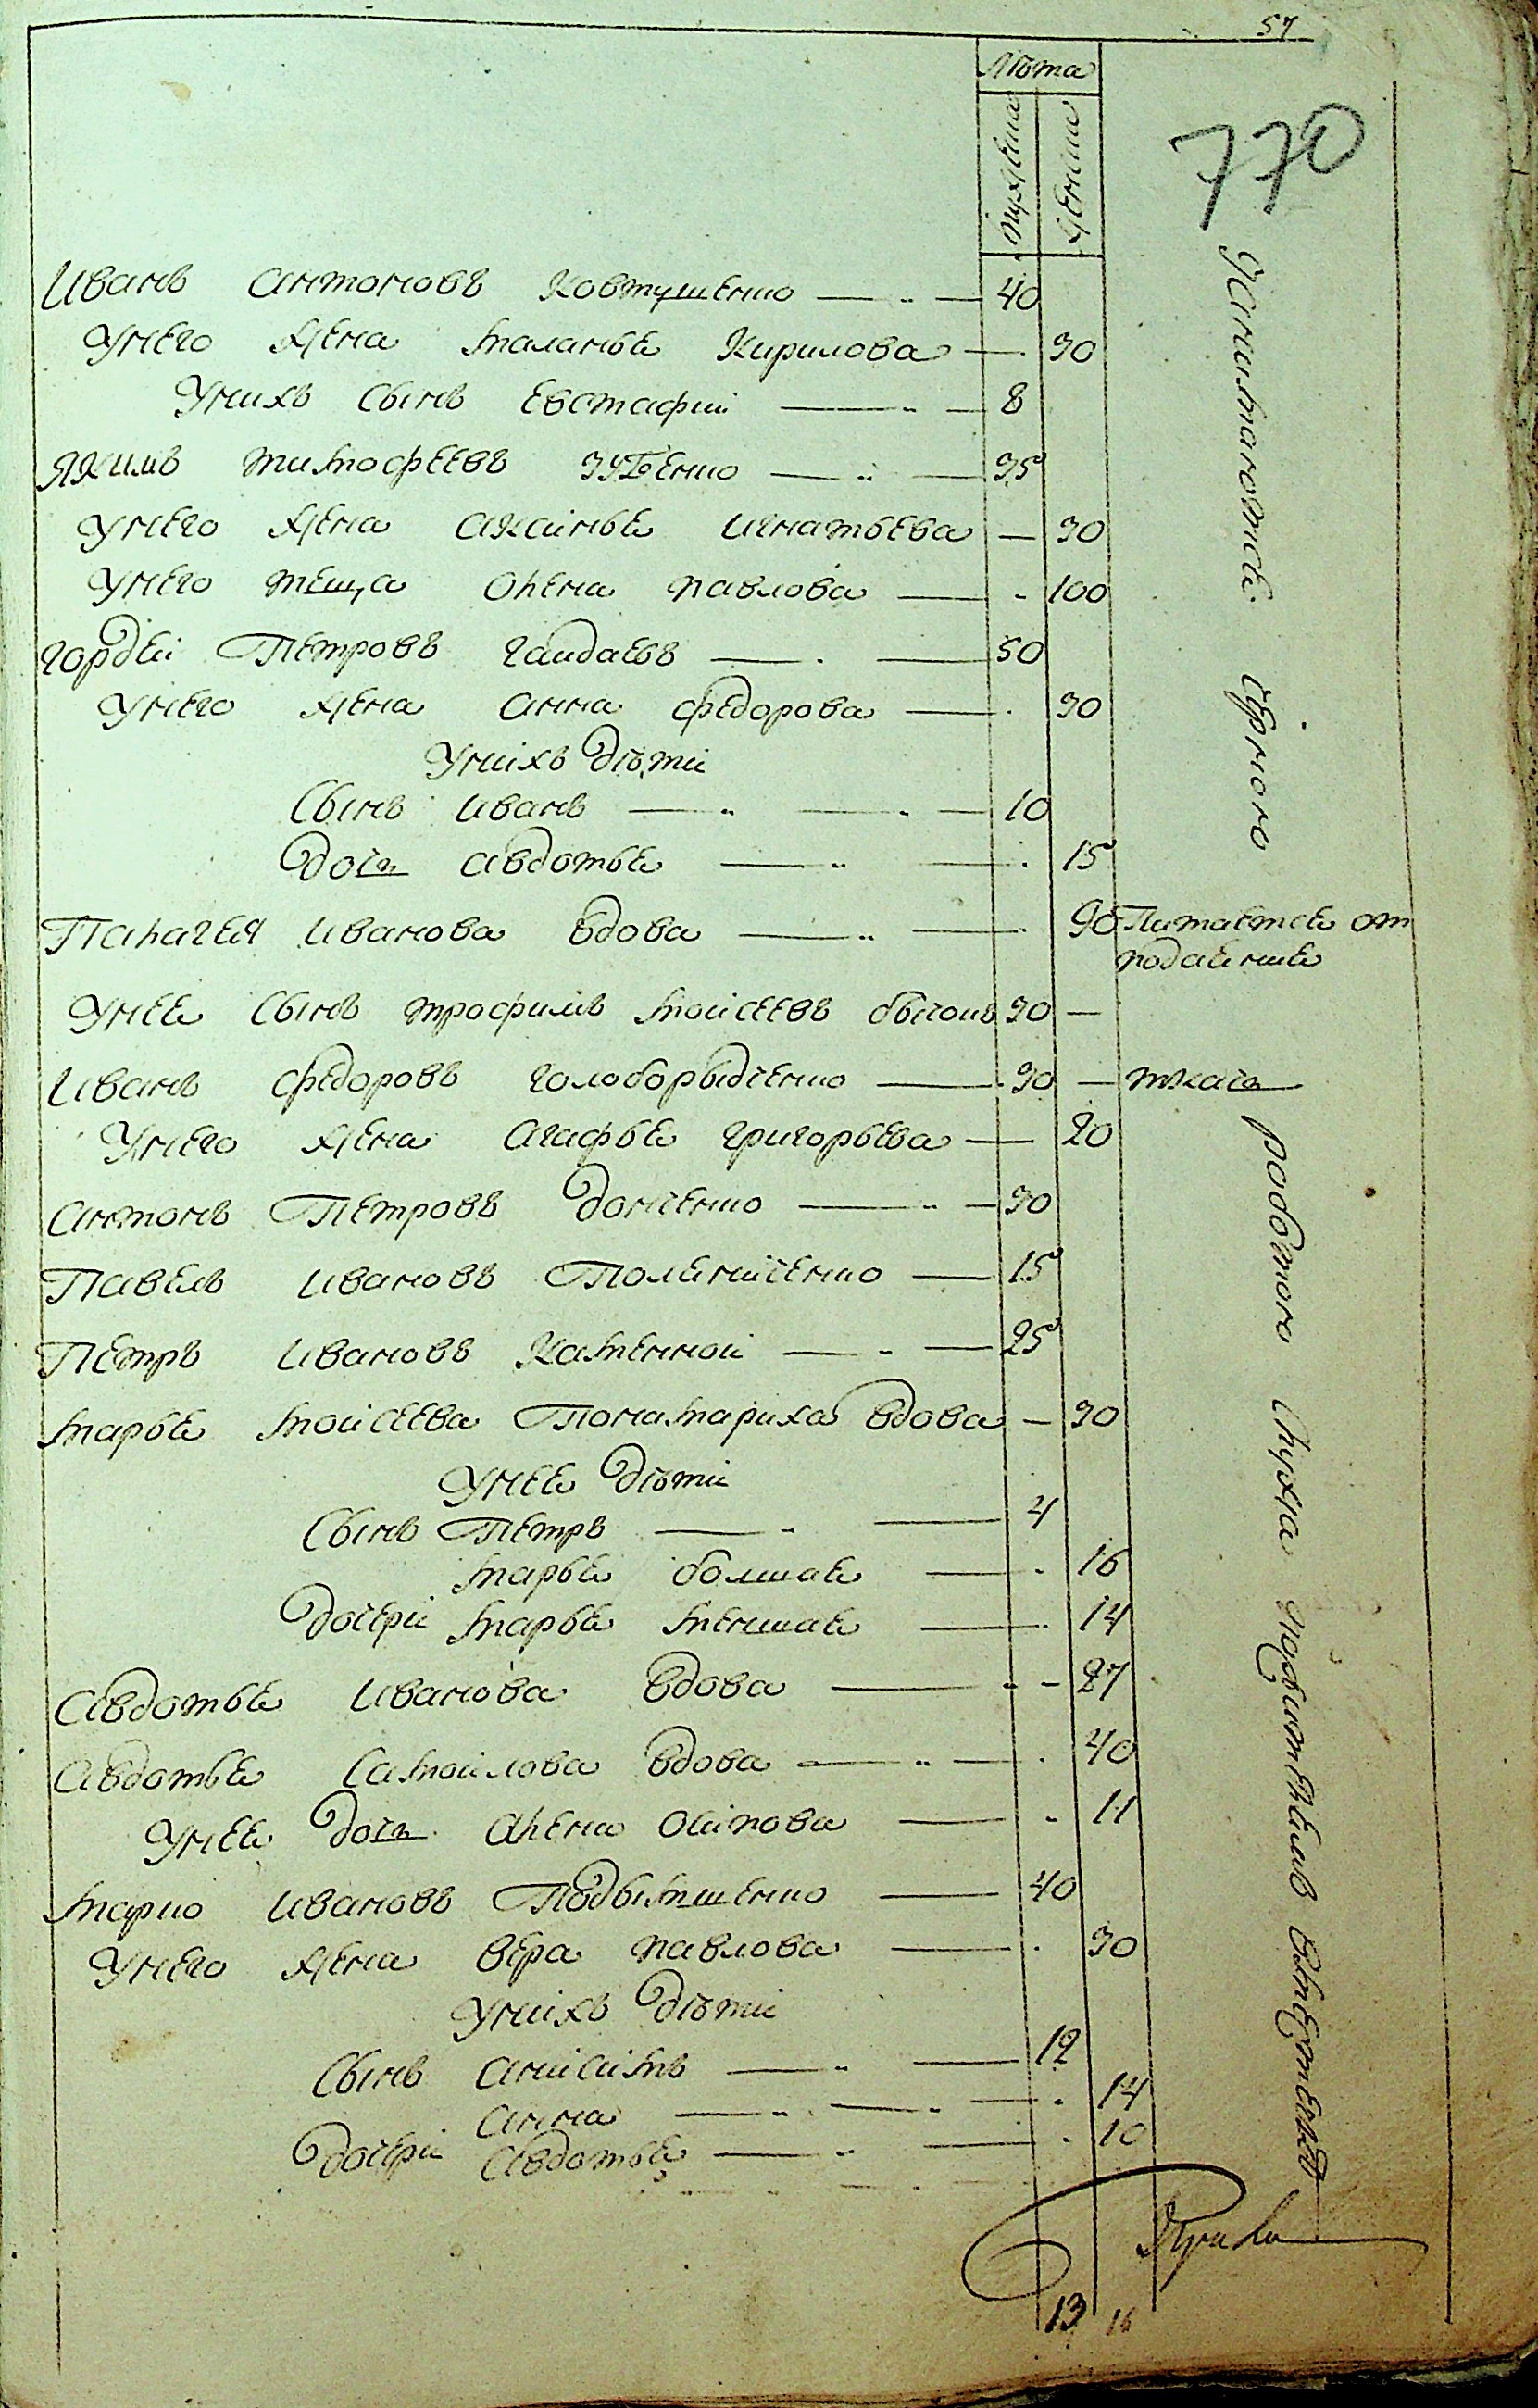 57
Лѣта
мужеска
женска
770
Иванъ Антоновъ Ковтушенко — 40
У него жена Маланья Кирилова — 30
У нихъ сынъ Евстафии — 8
Якимъ Тимофеевъ Зубенко — 35
У него жена Аксинья Игнатьева — 30
У него теща Олена Павлова — 100
Гордеи Петровъ Гаидаевъ — 50
У него жена Анна Федорова — 30
У нихъ дѣти
Сынъ Иванъ — 10
дочь Авдотья — 15
Палагея Иванова вдова — 90 Питается от
подаения
У нее сынъ Трофимъ Моисеевъ 30 —
Иванъ Федоровъ Голобородченко — 30 — ткачь
У него жена Агафья Григорьева — 20
Антонъ Петровъ Донченко — 30
Павелъ Ивановъ — 15
Петръ Ивановъ Каменнои — 25
Марья Моисеева Пономариха вдова — 30
У нее дѣти
Сынъ Петръ — 4
Марья болшая — 16
дочери Марья меншая — 14
Авдотья Иванова вдова — 27
Авдотья Самоилова вдова — 40
У нее дочь Алена Осипова — 11
Марко Ивановъ — 40
У него жена Вера Павлова — 30
У нихъ дѣти
Сынъ Анисимъ — 12
Анна — 14
дочери Авдотья — 10
13 16
черного
работного